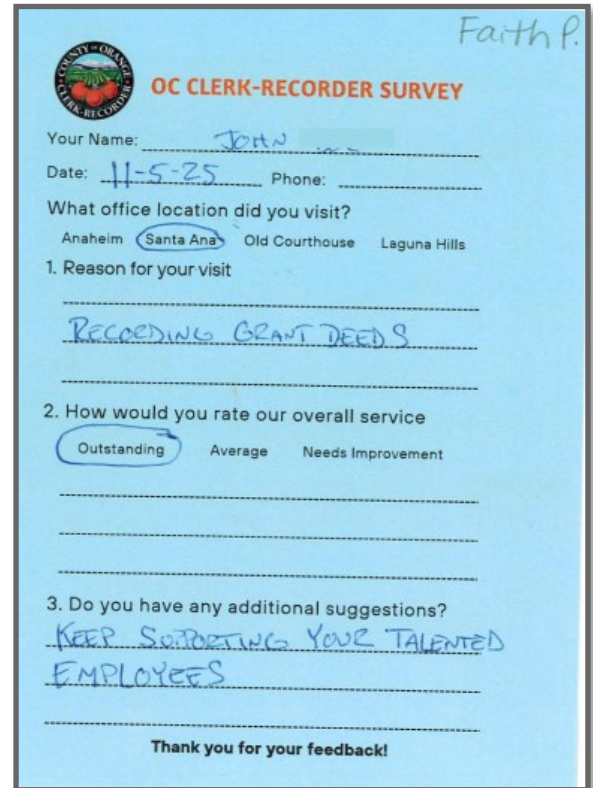 Faith P.
COUNTY OF ORANGE
CLERK-RECORDER
OC CLERK-RECORDER SURVEY
Your Name: JOHN
Date: 11-5-25 Phone:
What office location did you visit?
Anaheim Santa Ana Old Courthouse Laguna Hills
1. Reason for your visit
RECORDING GRANT DEEDS
2. How would you rate our overall service
Outstanding Average Needs Improvement
3. Do you have any additional suggestions?
KEEP SUPPORTING YOUR TALENTED
EMPLOYEES
Thank you for your feedback!